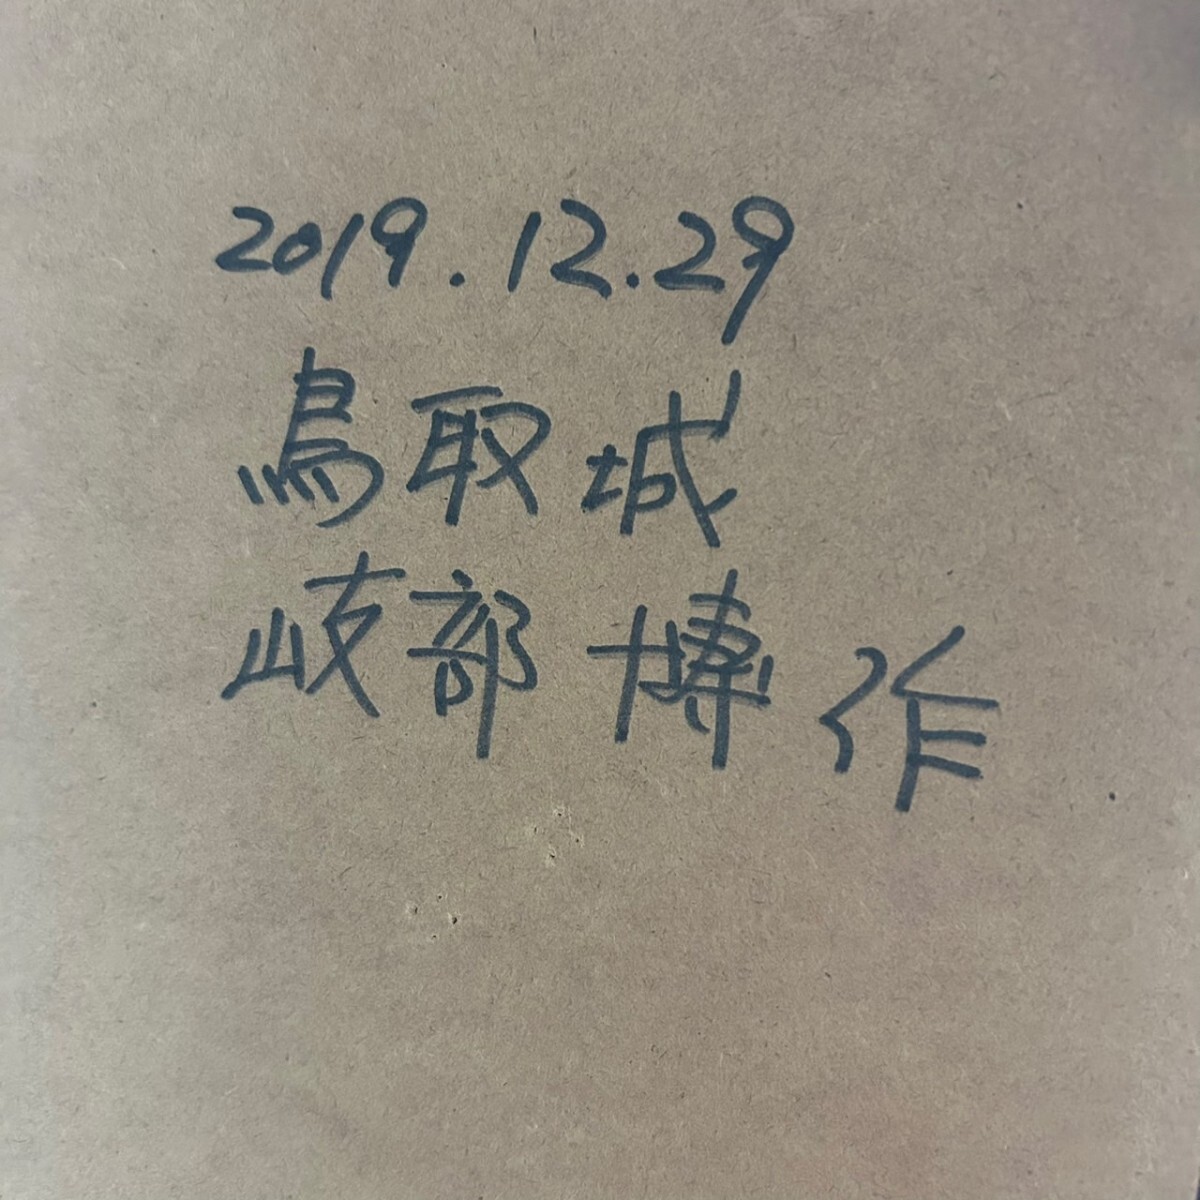 2019.12.29
鳥取城
岐部 博 作